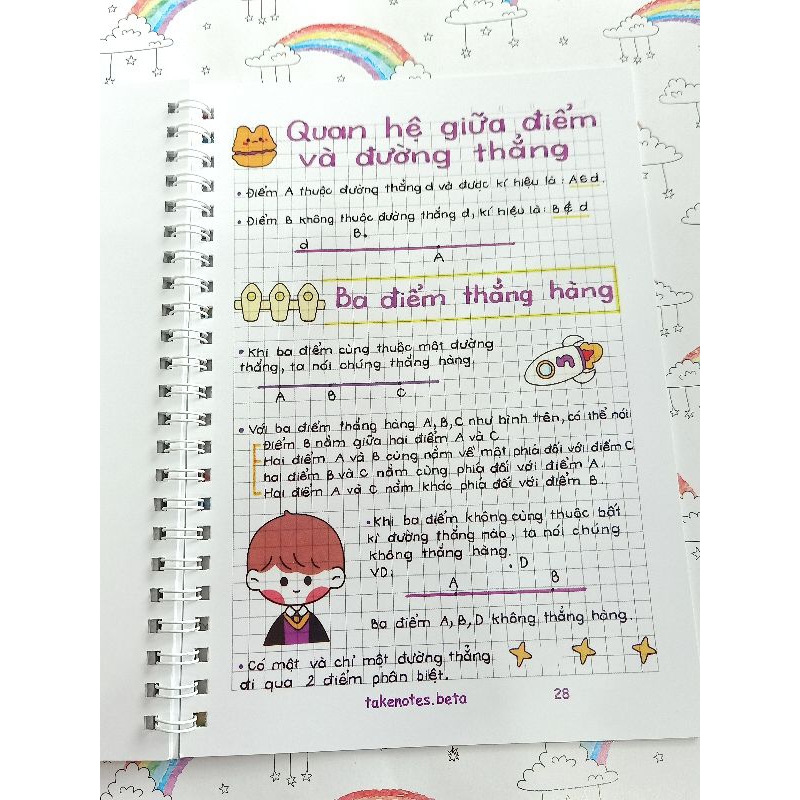 Quan hệ giữa điểm
và đường thẳng
• Điểm A thuộc đường thẳng d và được kí hiệu là: A∈d.
• Điểm B không thuộc đường thẳng d, kí hiệu là: B ∉ d
B.
d
A
Ba điểm thẳng hàng
• Khi ba điểm cùng thuộc một đường
thẳng, ta nói chúng thẳng hàng.
on
A B C
• Với ba điểm thẳng hàng A, B, C như hình trên, có thể nói
Điểm B nằm giữa hai điểm A và C
Hai điểm A và B cùng nằm về một phía đối với điểm C
hai điểm B và C nằm cùng phía đối với điểm A.
Hai điểm A và C nằm khác phía đối với điểm B.
• Khi ba điểm không cùng thuộc bất
kì đường thẳng nào, ta nói chúng
không thẳng hàng.
VD:
. D
A B
Ba điểm A, B, D không thẳng hàng.
• Có một và chỉ một đường thẳng
đi qua 2 điểm phân biệt.
takenotes.beta 28